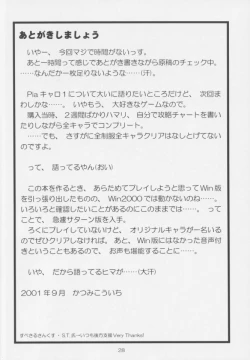 あとがきしましょう
いやー、今回マジで時間がないっす。
あと一時間って感じであとがき書きながら原稿のチェック中。
……なんだか一枚足りないような……(汗)。
Piaキャロ1について大いに語りたいところだけど、次回ま
わしかな……。いやもう、大好きなゲームなので。
購入当時、2週間ばかりハマリ、自分で攻略チャートを書い
たりしながら全キャラでコンプリート。
でも、さすがに全制服全キャラクリアはなしとげてない
ですよ。
って、語ってるやん(おい)
この本を作るとき、あらためてプレイしようと思ってWin版
を引っ張り出したものの、Win2000では動かないのね……。
いろいろと確認したいことがあるのにこのままでは……、っ
てことで、急遽サターン版を入手。
ろくにプレイしていないけど、オリジナルキャラが一名いる
のでぜひクリアしなければ。あと、Win版にはなかった音声付
きというこもあるので、お声も堪能することに……。
いや、だから語ってるヒマが……(大汗)
2001年9月 かつみこういち
28